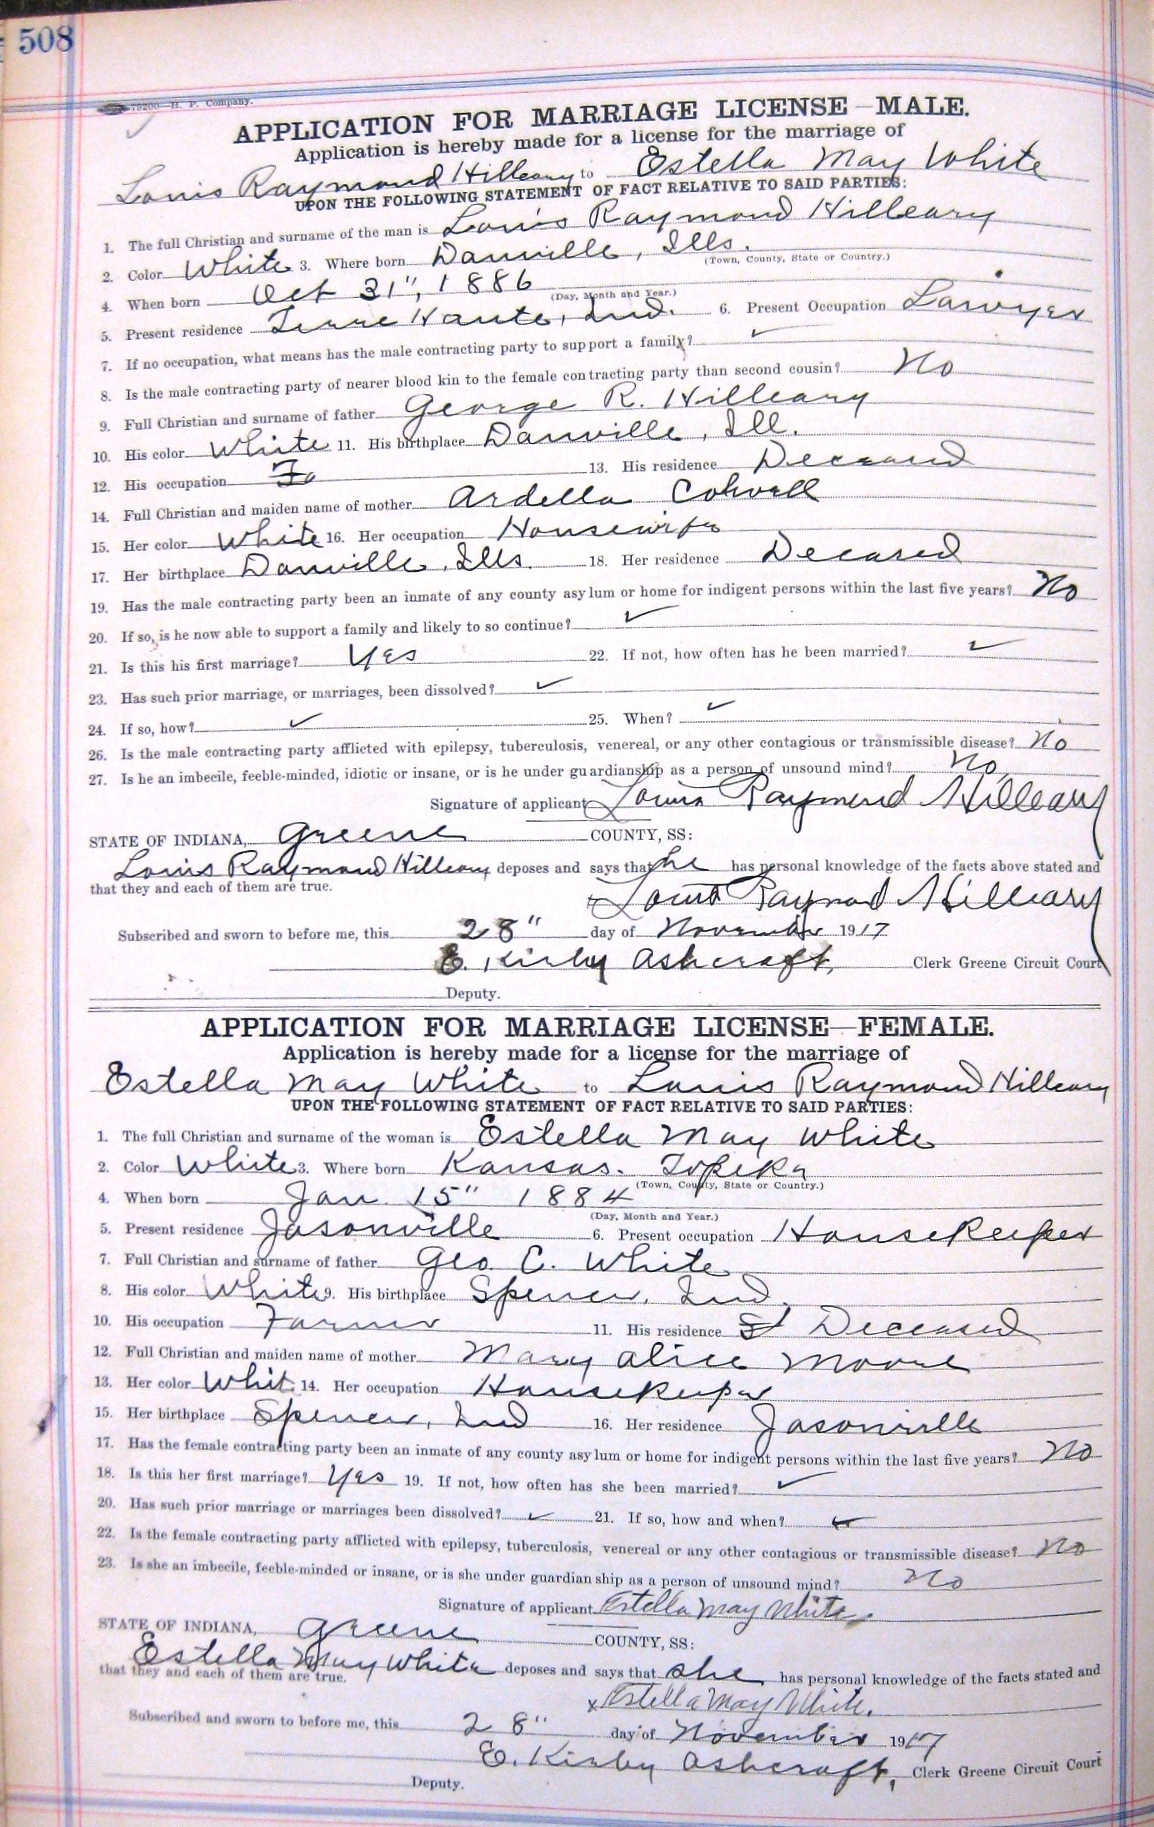 508
79200—H. P. Company.
APPLICATION FOR MARRIAGE LICENSE—MALE.
Application is hereby made for a license for the marriage of
Louis Raymond Hilleary to Estella May White
UPON THE FOLLOWING STATEMENT OF FACT RELATIVE TO SAID PARTIES:
1. The full Christian and surname of the man is Louis Raymond Hilleary
2. Color White 3. Where born Danville, Ills.
(Town, County, State or Country.)
4. When born Oct 31", 1886
(Day, Month and Year.)
5. Present residence Terre Haute, Ind. 6. Present Occupation Lawyer
7. If no occupation, what means has the male contracting party to support a family? ✓
8. Is the male contracting party of nearer blood kin to the female contracting party than second cousin? No
9. Full Christian and surname of father George R. Hilleary
10. His color White 11. His birthplace Danville, Ill.
12. His occupation Fa 13. His residence Deceased
14. Full Christian and maiden name of mother Ardella
15. Her color White 16. Her occupation Housewife
17. Her birthplace Danville, Ills. 18. Her residence Decased
19. Has the male contracting party been an inmate of any county asylum or home for indigent persons within the last five years? No
20. If so, is he now able to support a family and likely to so continue? ✓
21. Is this his first marriage? Yes 22. If not, how often has he been married? ✓
23. Has such prior marriage, or marriages, been dissolved? ✓
24. If so, how? ✓ 25. When? ✓
26. Is the male contracting party afflicted with epilepsy, tuberculosis, venereal, or any other contagious or transmissible disease? No
27. Is he an imbecile, feeble-minded, idiotic or insane, or is he under guardianship as a person of unsound mind? No
Signature of applicant Louis Raymond Hilleary
STATE OF INDIANA, Greene COUNTY, SS:
Louis Raymond Hilleary deposes and says that he has personal knowledge of the facts above stated and
that they and each of them are true.
Louis Raymond Hilleary
Subscribed and sworn to before me, this 28" day of November 1917
E. Kirby Ashcraft, Clerk Greene Circuit Court
Deputy.
APPLICATION FOR MARRIAGE LICENSE—FEMALE.
Application is hereby made for a license for the marriage of
Estella May White to Louis Raymond Hilleary
UPON THE FOLLOWING STATEMENT OF FACT RELATIVE TO SAID PARTIES:
1. The full Christian and surname of the woman is Estella May White
2. Color White 3. Where born Kansas. Topeka
(Town, County, State or Country.)
4. When born Jan 15" 1884
(Day, Month and Year.)
5. Present residence Jasonville 6. Present occupation Housekeeper
7. Full Christian and surname of father Geo. C. White
8. His color White 9. His birthplace Spencer, Ind.
10. His occupation Farmer 11. His residence Deceased
12. Full Christian and maiden name of mother Mary Alice Moore
13. Her color Whit. 14. Her occupation Housekeeper
15. Her birthplace Spencer, Ind 16. Her residence Jasonville
17. Has the female contracting party been an inmate of any county asylum or home for indigent persons within the last five years? No
18. Is this her first marriage? Yes 19. If not, how often has she been married? ✓
20. Has such prior marriage or marriages been dissolved? ✓ 21. If so, how and when? ✓
22. Is the female contracting party afflicted with epilepsy, tuberculosis, venereal or any other contagious or transmissible disease? No
23. Is she an imbecile, feeble-minded or insane, or is she under guardianship as a person of unsound mind? No
Signature of applicant Estella May White
STATE OF INDIANA, Greene COUNTY, SS:
Estella May White deposes and says that she has personal knowledge of the facts stated and
that they and each of them are true.
x Estella May White.
Subscribed and sworn to before me, this 28" day of November 1917
E. Kirby Ashcraft, Clerk Greene Circuit Court
Deputy.